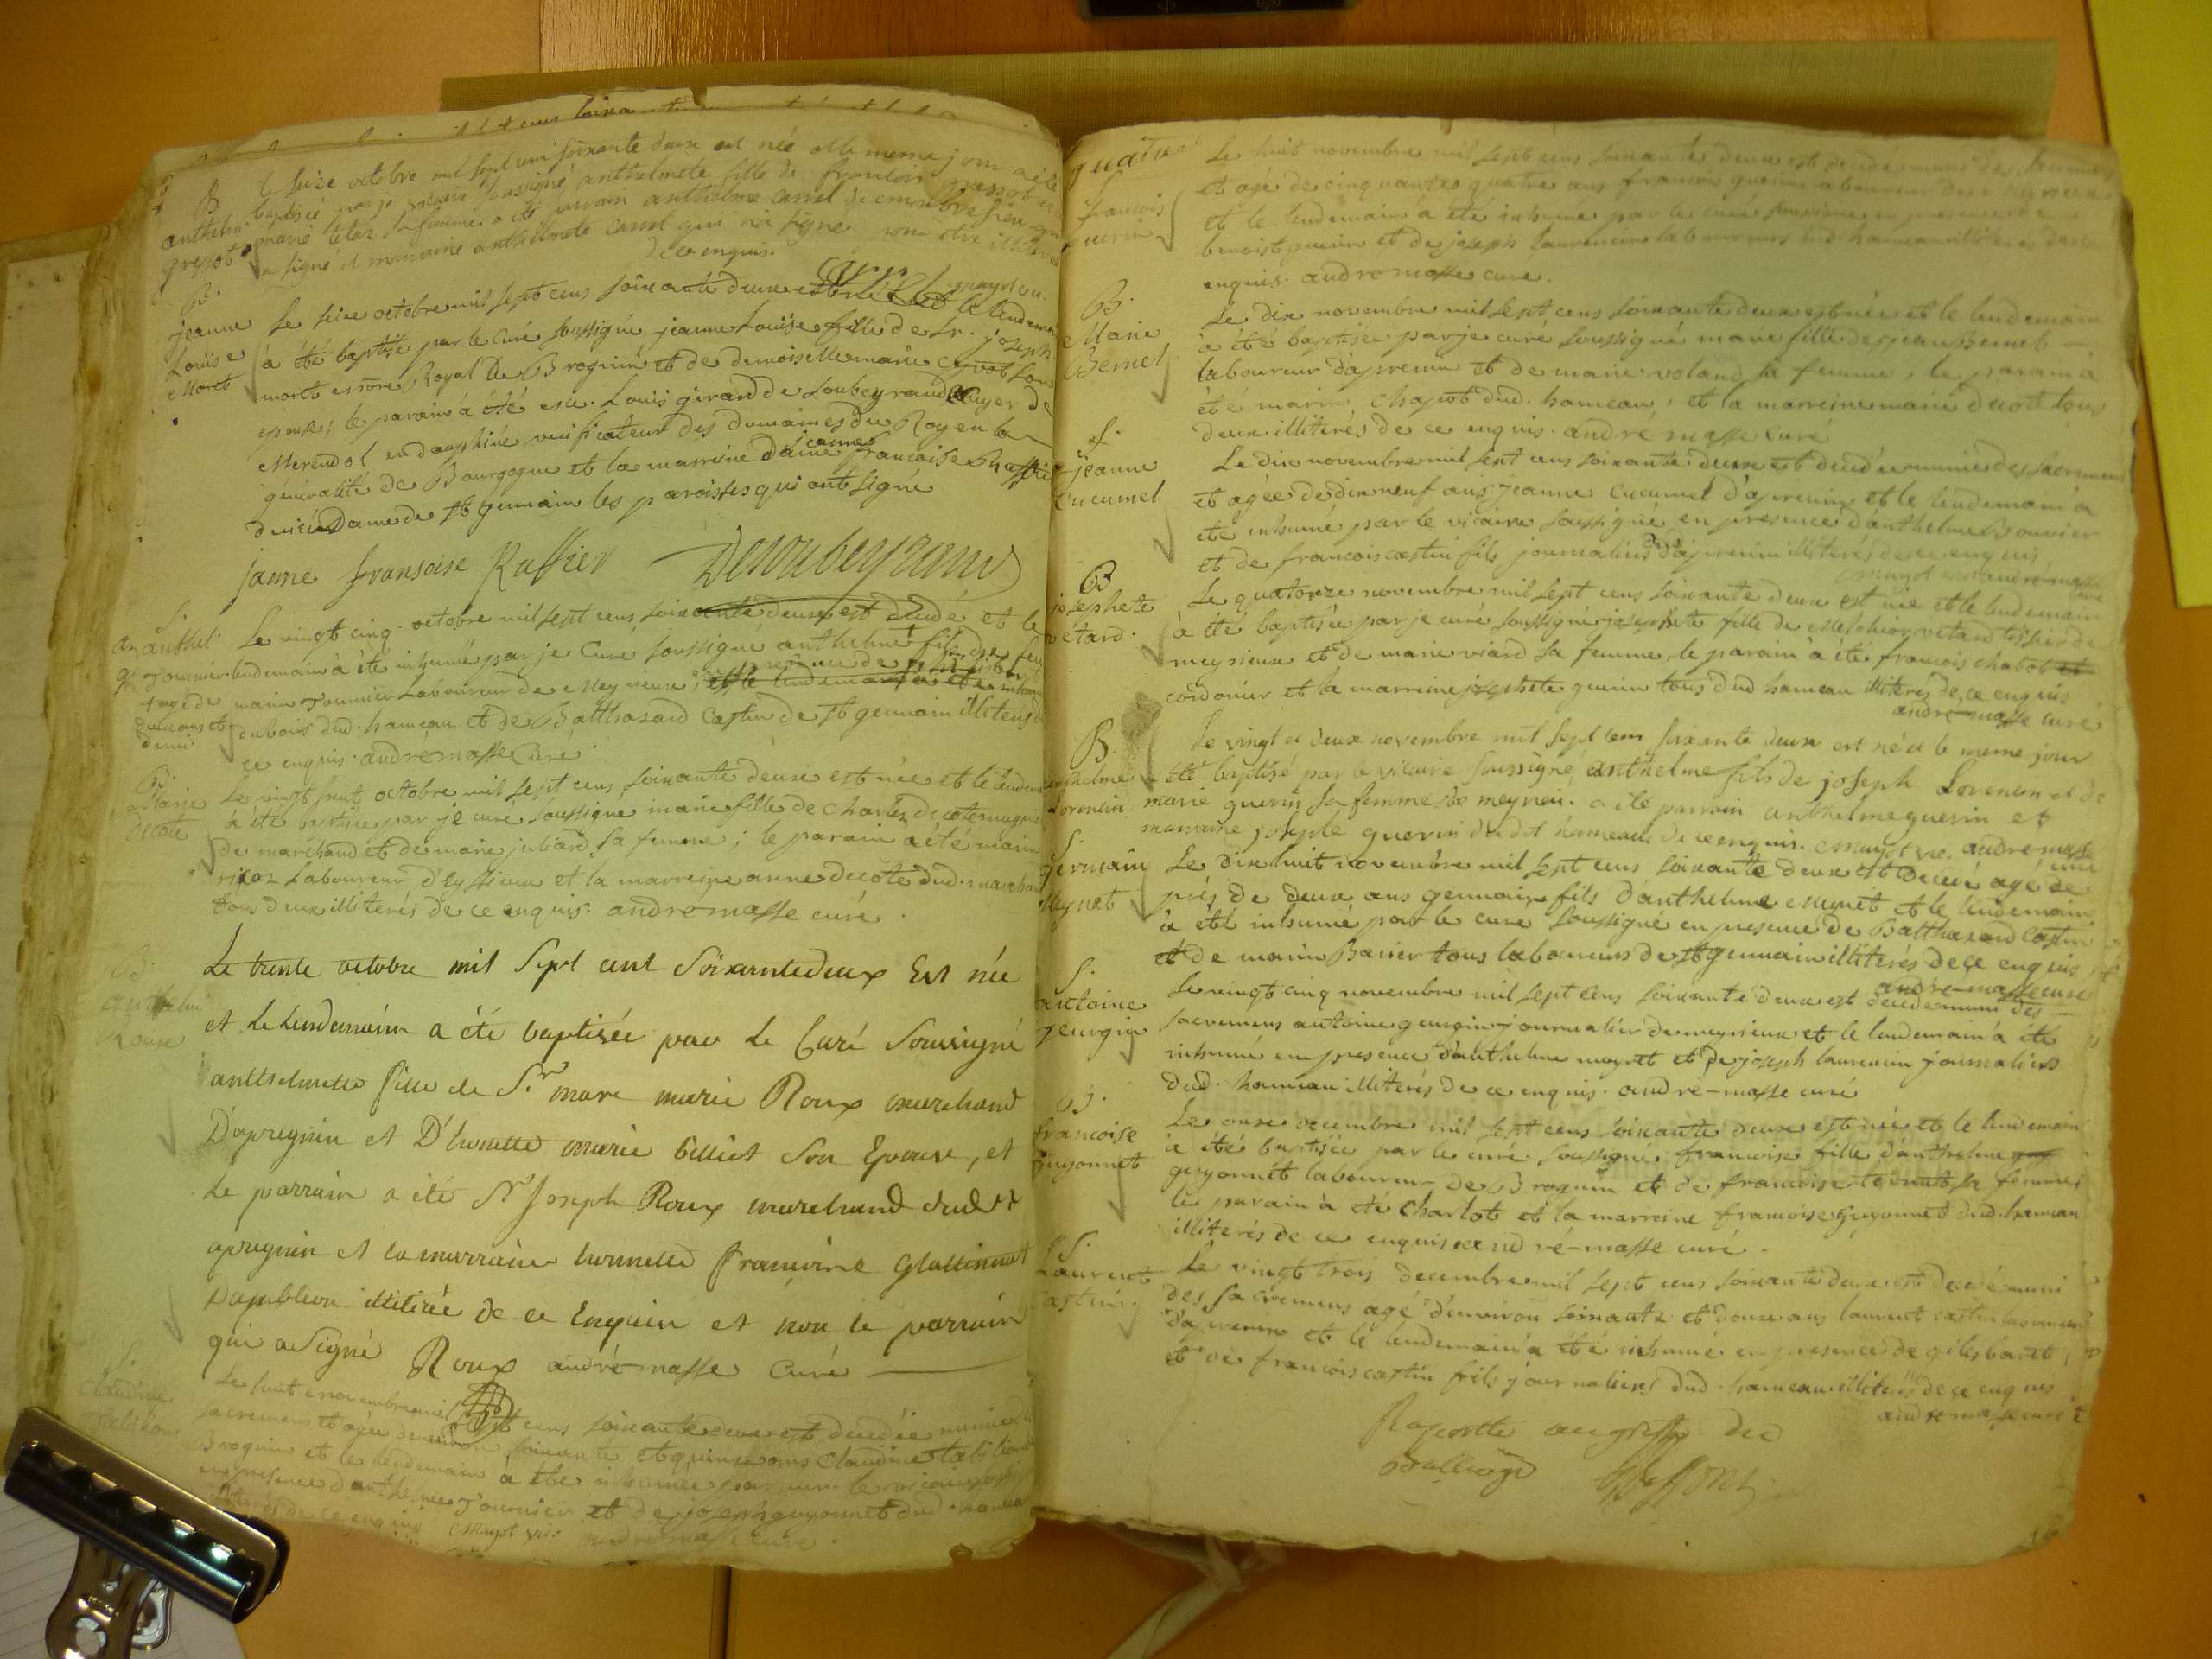 B
anthelm
gressot
le seize octobre mil sept cens soixante deux est née et le meme jour a été
baptisée par je vicaire soussigné, anthelmete fille de francois gressot et de
marie tetaz sa femme a été parrain anthelme carrel de
a signé et marraine anthelmete carrel qui n'a signé pour etre illiteré
de ce enquis.
B.
jeanne
Louise
Moret
Le seize octobre mil sept cens soixante deux est née et le lendemain
à été baptisé par le curé soussigné jeanne Louise fille de Sr. joseph
moret Royal de Brognin et de demoiselle marie son
epouse; le parain à été Louis girard de Soubeyrand Ecuyer de
Merendol en dauphiné verificateur des domaines du Roy en la
généralité de Bourgogne et la marreine Dame jeanne francoise Ruffier
Dame de St germain les paroisses qui ont signé
janne fransoise Ruffier Desoubeyrand
S.
anthel.
Tournier
agé de
deux ans et
demi
Le vingt cinq octobre mil sept cens soixante deux est decedé et le
lendemain à été inhumé par je Curé soussigné anthelme fils de feu
marin Tournier Laboureur de Meyrieux, en presence de
dubois dud. hameau et de Balthazard Castin de St germain illiterés de
ce enquis. andré masse curé.
B.
Marie
decote
Le vingt huit octobre mil sept cens soixante deux est née et le lendemain
à été baptisée par je curé soussigné marie fille de Charles decote
de marchand et de marie juliard sa femme; le parain a été marin
Laboureur d'Eyssieux et la marreine anne decote dud. marchand
tous deux illiterés de ce enquis. andré masse curé.
B.
anthelme
Roux
Le trente octobre mil sept cent soixante deux Est née
et le lendemain a été baptisée par le Curé Soussigné
anthelmette fille de Sr marc marie Roux marchand
D'apregnin et D'honnette marie billiet son Epouse, et
le parrain a été Sr Joseph Roux marchand dudit
apregnin et la marraine honnette francoise
illitérée de ce Enquise et non le parrain
qui a signé Roux andré-masse Curé
S.
Claudine
Tabition
Le huit novembre mil sept cens soixante deux est decedée munie des
sacremens et agée d'environ soixante et quinze ans Claudine tabition
Brognin et le lendemain à été inhumée par le vicaire soussigné
en presence d'anthelme Tournier et de joseph guyonnet dud. hameau
illiterés de ce enquis Mayot vic. andré masse curé.
quatre
francois
guerin
Le huit novembre mil sept cens soixante deux est decedé muni des sacremens
et agé de cinquante quatre ans francois guerin laboureur de Meyrieux
et le lendemain à été inhumé par le curé soussigné en presence de
benoist guerin et de joseph Laurencin laboureurs dud. hameau illiterés de ce
enquis. andré masse curé.
B.
Marie
Bernet
Le dix novembre mil sept cens soixante deux est née et le lendemain
à été baptisée par je curé soussigné marie fille de jean Bernet
laboureur d'apremin et de marie voland sa femme, le parain à
été marin Chapot dud. hameau, et la marreine marie decote tous
deux illiterés de ce enquis. andré masse curé
S.
jeanne
Cucumel
Le dix novembre mil sept cens soixante deux est decedée munie des sacremens
et agée de dix neuf ans jeanne Cucumel d'apremin et le lendemain à
été inhumé par le vicaire soussigné en presence d'anthelme Bouvier
et de francois castin fils journaliers d'apremin illiterés de ce enquis
Mayot vic. andré-masse curé
B
josephete
vetard.
Le quatorze novembre mil sept cens soixante deux est née et le lendemain
à été baptisée par je curé soussigné josephete fille de Melchior vetard tissier de
meyrieux et de marie viard sa femme, le parain à été francois chabot
cordonier et la marreine josephete guerin tous dud hameau illiterés de ce enquis
andré-masse curé
B.
anthelme
Lorencin
Le vingt et deux novembre mil sept cens soixante deux est né et le meme jour
a été baptisé par le vicaire soussigné, anthelme fils de joseph Lorencin et de
marie guerin sa femme de meyrieu. a été parrain anthelme guerin et
marraine josephte guerin dudit hameau. de ce enquis. Mayot vic. andré masse
curé
S.
germain
Meynet
Le dix huit novembre mil sept cens soixante deux est decedé agé de
prés de deux ans germain fils d'anthelme Meynet et le lendemain
à été inhumé par le curé soussigné en presence de Balthazard Castin
et de marin Barier tous laboureurs de St germain illiterés de ce enquis
andré-masse curé
S.
antoine
georgin
Le vingt cinq novembre mil sept cens soixante deux est decedé muni des
sacremens antoine georgin journalier de meyrieux et le lendemain à été
inhumé en presence d'anthelme meynet et de joseph laurencin journaliers
dud. hameau illiterés de ce enquis. andré-masse curé
B.
francoise
Guyonnet
Le onze decembre mil sept cens soixante deux est née et le lendemain
à été baptisée par le curé soussigné. francoise fille d'anthelme
guyonnet laboureur de Brognin et de francoise sa femme;
le parain à été Charlot et la marreine francoise guyonnet dud. hameau
illiterés de ce enquis andré-masse curé.
S.
Laurent
Castin.
Le vingt trois decembre mil sept cens soixante deux est decedé muni
des sacremens agé d'environ soixante et douze ans laurent castin laboureur
d'apremin et le lendemain à été inhumé en presence de
et de francois castin fils journaliers dud. hameau illiterés de ce enquis
andré masse curé
Raporté au greffe du
Balliage